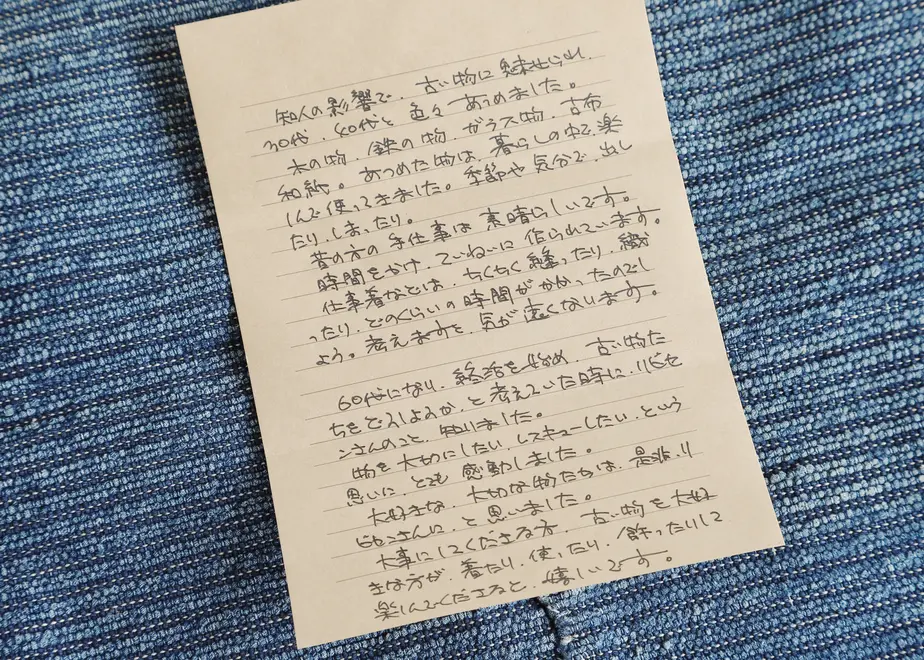 知人の影響で、古い物に魅せられ、
30代、40代と色々あつめました。
木の物、鉄の物、ガラス物、古布
和紙。あつめた物は、暮らしの中で楽
しんで使ってきました。季節や気分で、出し
たり、しまったり。
昔の方の手仕事は素晴らしいです。
時間をかけ、ていねいに作られています。
仕事着などは、ちくちく縫ったり、織
ったり、どのくらいの時間がかかったのでし
ょう。考えますと、気が遠くなります。
60代になり、終活を始め、古い物た
ちをどうしようか、と考えていた時に、リビセ
ンさんのこと、知りました。
物を大切にしたい、レスキューしたい、という
思いに、とても感動しました。
大好きな、大切な物たちは、是非、リ
ビセンさんに、と思いました。
大事にしてくださる方、古い物を大好
きな方が、着たり、使ったり、飾ったりして
楽しんでくださると、嬉しいです。